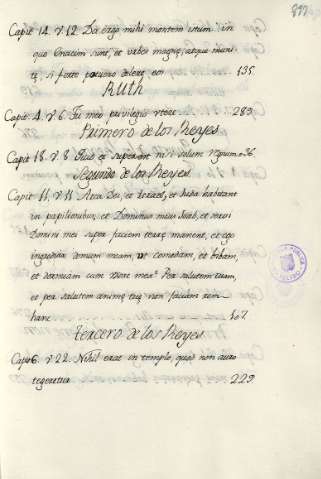 Capit. 14. v 12. Da ergo mihi montem istum in
quo Enacim sunt, et urbes magnę, atque muni-
tę, si forte potuero delere eos 135
Ruth
Capit. 4. v 6. Tu meo privilegio utere 283
Primero de los Reyes
Capit. 18. v 8. Quid ei superest nisi solum regnum 36.
Segundo de los Reyes
Capit. 11. v 11. Arca Dei, et Israel, et Juda habitant
in papilionibus, et Dominus meus Joab, et servi
Domini mei supra faciem terrę manent, et ego
ingrediar domum meam, ut comedam, et bibam,
et dormiam cum uxore mea? Per salutem tuam,
et per salutem animę tuę non faciam rem
hanc 167
tercero de los Reyes
Cap. 6. v 22. Nihil erat in templo, quod non auro
tegeretur 229